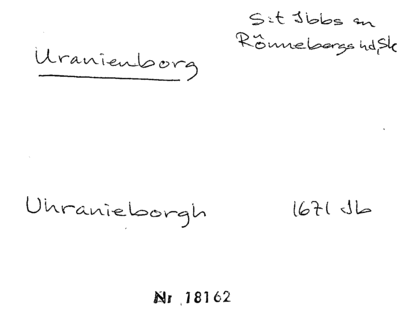 S:t Ibbs sn
Uranienborg Rönnebergs hd, Sk
Uhranieborgh 1671 Jb
Nr 18162